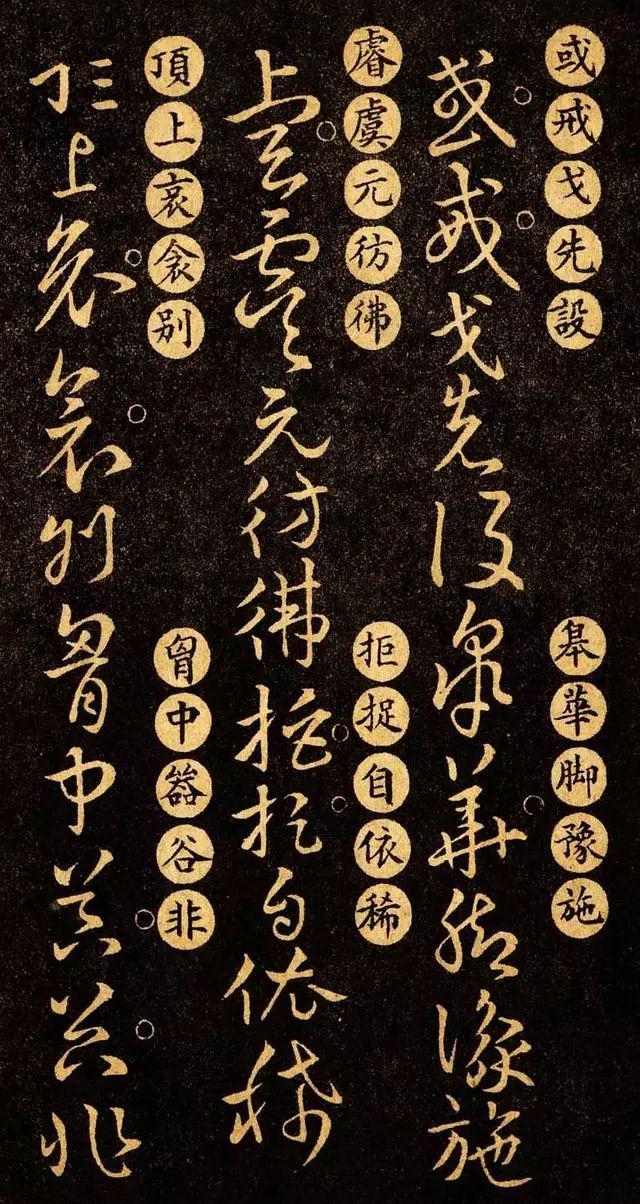 或戒戈先設
皋華脚豫施
或戒戈先設皋華脚豫施
睿虞元彷彿
拒捉自依稀
睿虞元彷彿拒捉自依稀
頂上哀衾别
胷中器谷非
頂上哀衾别胷中器谷非